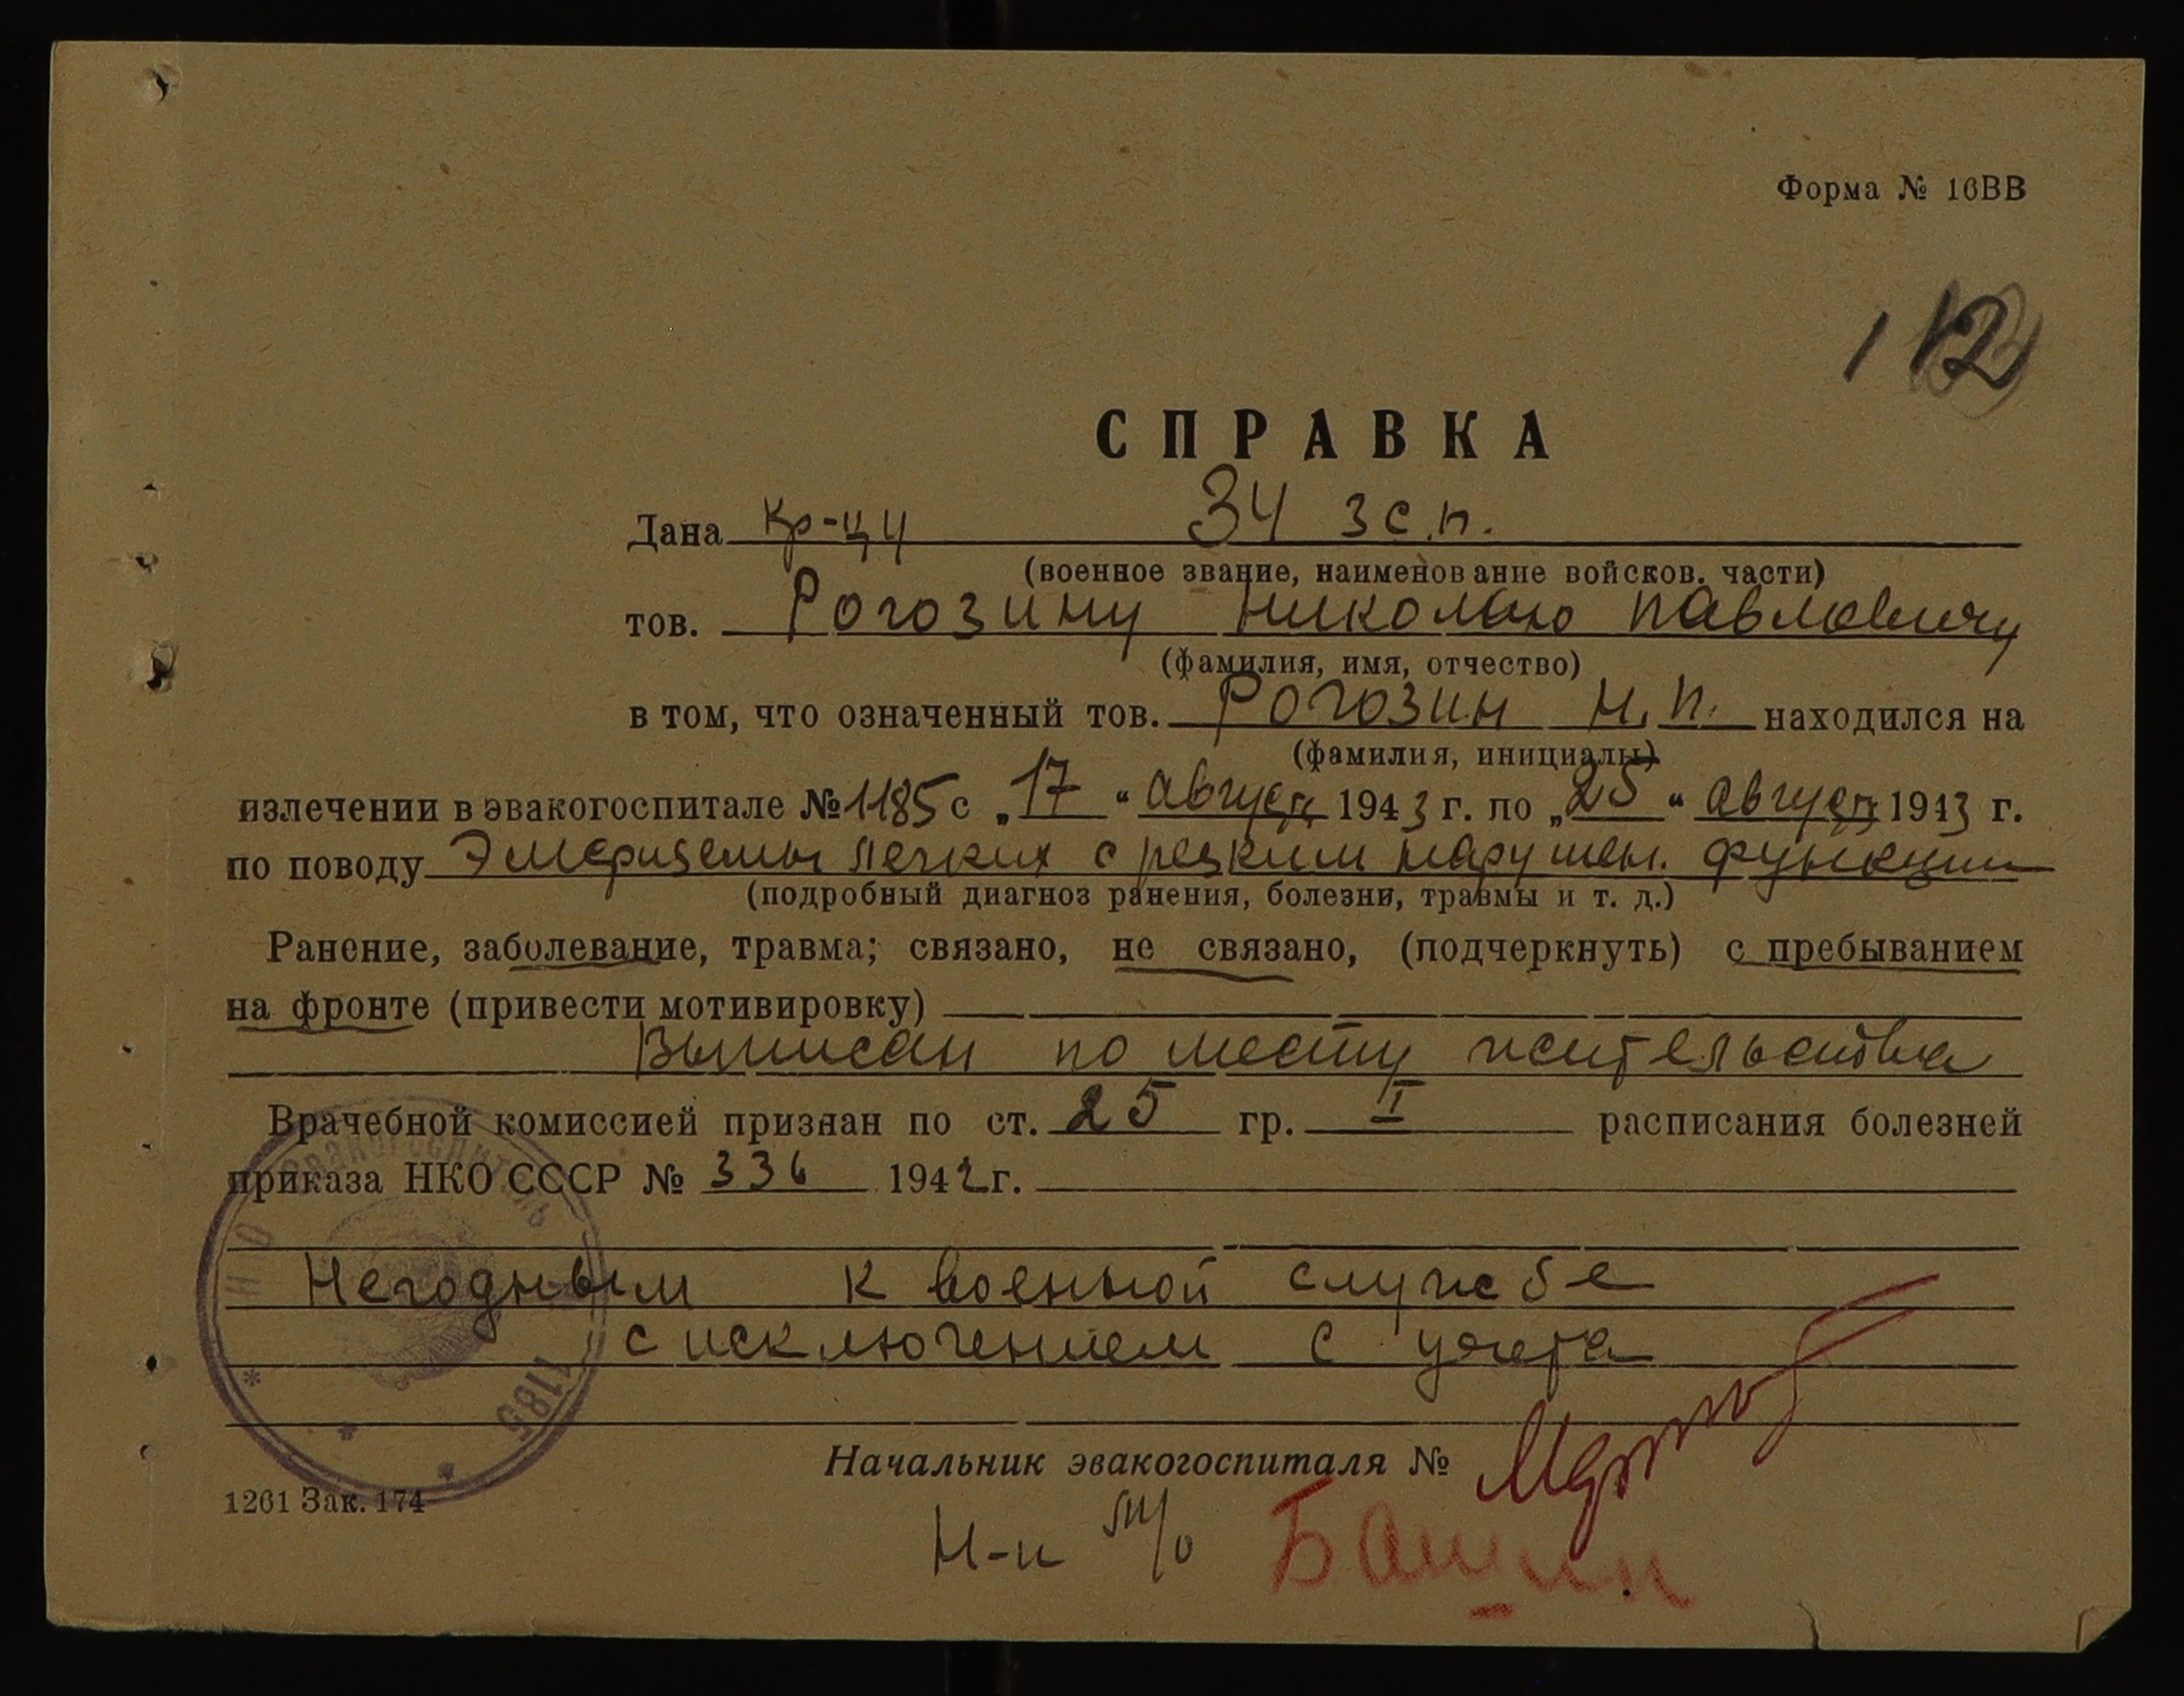 Форма № 16ВВ
112
СПРАВКА
Дана кр-цу 34 зс.п.
(военное звание, наименование войсков. части)
тов. Рогозину Николаю Павловичу
(фамилия, имя, отчество)
в том, что означенный тов. Рогозин Н. П. находился на
(фамилия, инициалы)
излечении в эвакогоспитале № 1185 с „17“ августа 1943 г. по „25“ августа 1943 г.
по поводу Эмфиземы легких с резким нарушен. функции
(подробный диагноз ранения, болезни, травмы и т. д.)
Ранение, заболевание, травма; связано, не связано, (подчеркнуть) с пребыванием
на фронте (привести мотивировку)
Выписан по месту жительства
Врачебной комиссией признан по ст. 25 гр. I расписания болезней
приказа НКО СССР № 336 1942 г.
Негодным к военной службе
с исключением с учета
Начальник эвакогоспиталя №
1261 Зак. 174
Н-к
НКО эвакогоспиталь
1185